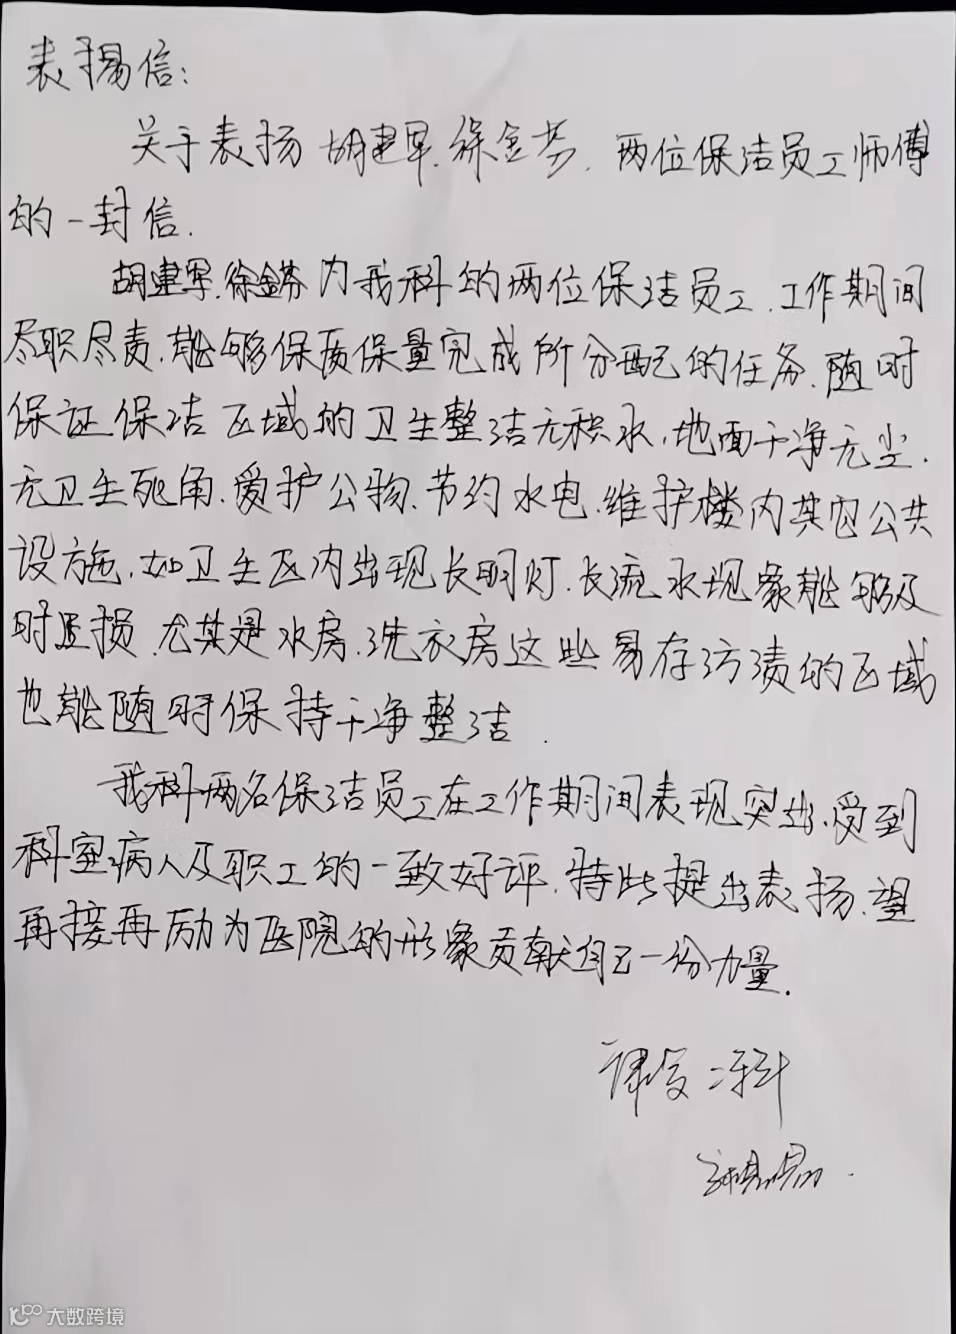 表扬信:
关于表扬胡建军.徐金芬.两位保洁员工师傅
的一封信.
胡建军.徐金芬为我科的两位保洁员工.工作期间
尽职尽责.能够保质保量完成所分配的任务.随时
保证保洁区域的卫生整洁无积水,地面干净无尘.
无卫生死角.爱护公物.节约水电.维护楼内其它公共
设施.如卫生区内出现长明灯.长流水现象能够及
时 损.尤其是水房.洗衣房这些易存污渍的区域
也能随时保持干净整洁.
我科两名保洁员工在工作期间表现突出.受到
科室病人及职工的一致好评.特此提出表扬.望
再接再励为医院的形象贡献自己一份力量.
康复二科
大数跨境